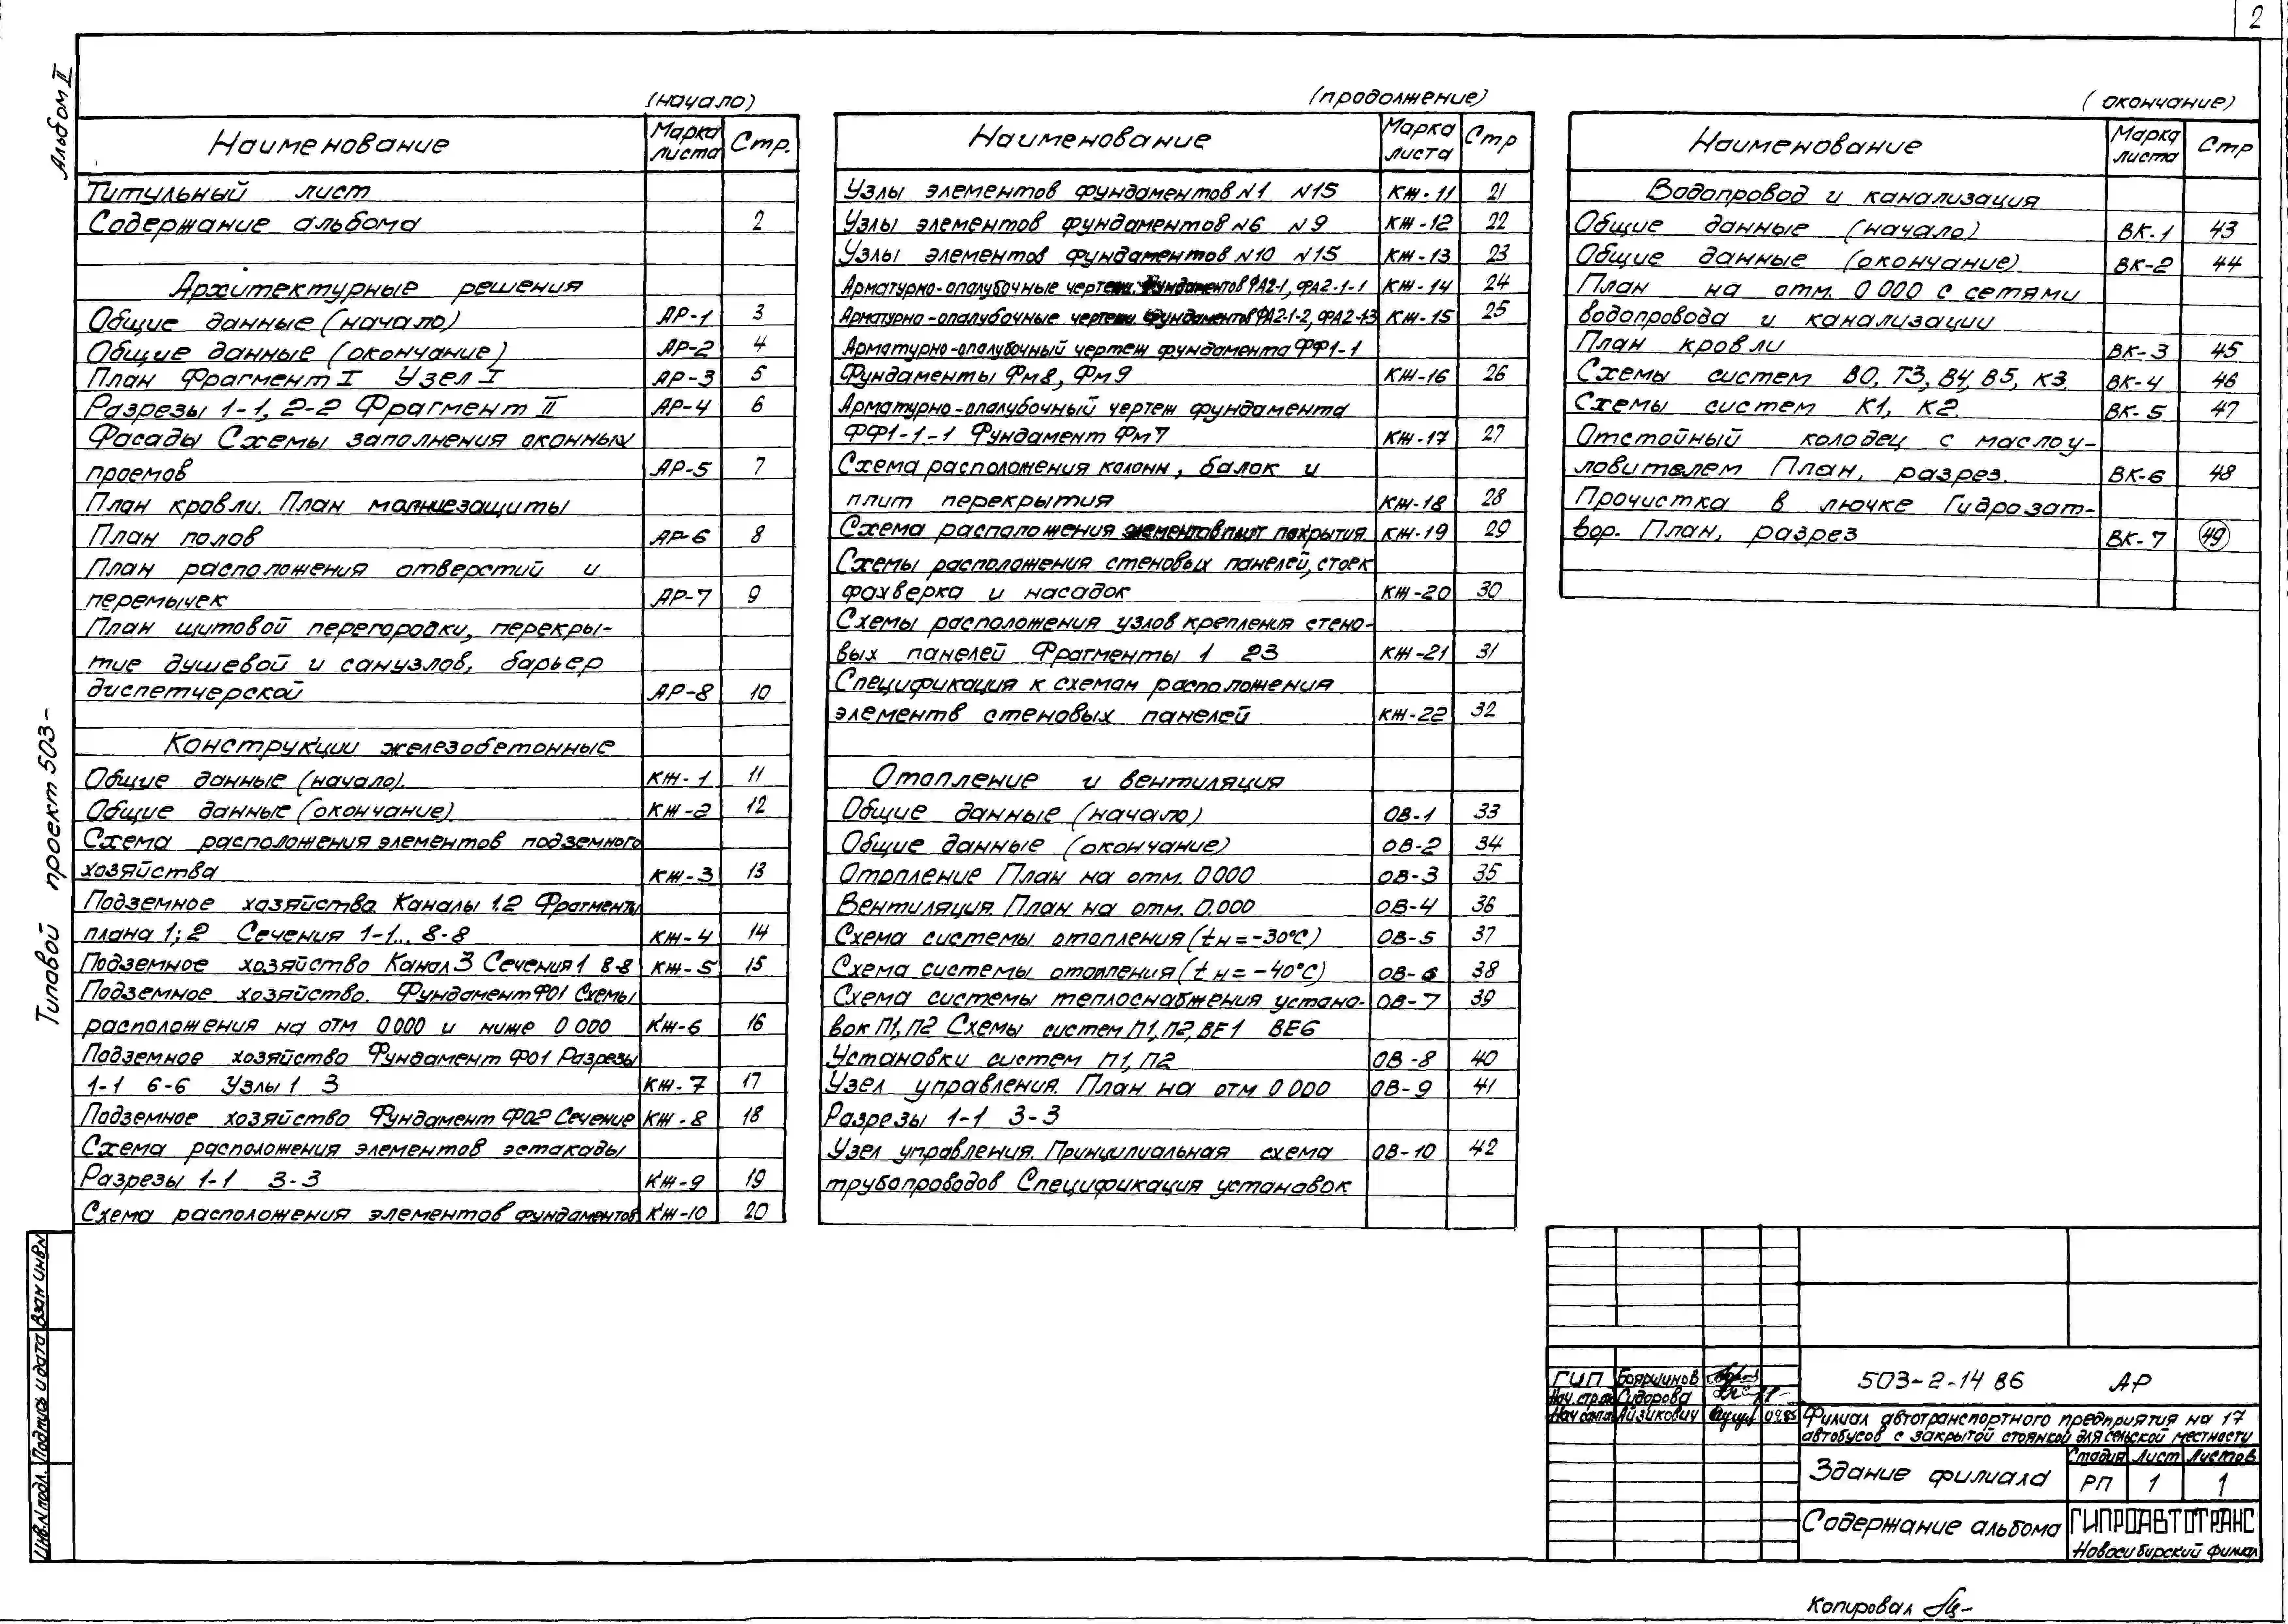 2
Альбом II
Типовой проект 503-
(начало)
Наименование Марка листа Стр.
Титульный лист
Содержание альбома 2
Архитектурные решения
Общие данные (начало) АР-1 3
Общие данные (окончание) АР-2 4
План Фрагмент I Узел I АР-3 5
Разрезы 1-1, 2-2 Фрагмент II АР-4 6
Фасады Схемы заполнения оконных
проемов АР-5 7
План кровли. План молниезащиты
План полов АР-6 8
План расположения отверстий и
перемычек АР-7 9
План щитовой перегородки, перекры-
тие душевой и санузлов, барьер
диспетчерской АР-8 10
Конструкции железобетонные
Общие данные (начало). КЖ-1 11
Общие данные (окончание). КЖ-2 12
Схема расположения элементов подземного
хозяйства КЖ-3 13
Подземное хозяйство. Каналы 1.2 Фрагменты
плана 1; 2 Сечения 1-1... 8-8 КЖ-4 14
Подземное хозяйство Канал 3 Сечения 1 8-8 КЖ-5 15
Подземное хозяйство. Фундамент Ф01 Схемы
расположения на отм 0 000 и ниже 0 000 КЖ-6 16
Подземное хозяйство Фундамент Ф01 Разрезы
1-1 6-6 Узлы 1 3 КЖ-7 17
Подземное хозяйство Фундамент Ф02 Сечение КЖ-8 18
Схема расположения элементов эстакады
Разрезы 1-1 3-3 КЖ-9 19
Схема расположения элементов фундаментов КЖ-10 20
(продолжение)
Наименование Марка листа Стр
Узлы элементов фундаментов N1 N15 КЖ-11 21
Узлы элементов фундаментов N6 N9 КЖ-12 22
Узлы элементов фундаментов N10 N15 КЖ-13 23
Арматурно-опалубочные чертежи. Фундаментов ФА2-1, ФА2-1-1 КЖ-14 24
Арматурно-опалубочные чертежи Фундаментов ФА2-1-2, ФА2-1-3 КЖ-15 25
Арматурно-опалубочный чертеж фундамента ФФ1-1
Фундаменты Фм8, Фм9 КЖ-16 26
Арматурно-опалубочный чертеж фундамента
ФФ1-1-1 Фундамент Фм7 КЖ-17 27
Схема расположения колонн, балок и
плит перекрытия КЖ-18 28
Схема расположения элементов плит покрытия. КЖ-19 29
Схемы расположения стеновых панелей, стоек
фахверка и насадок КЖ-20 30
Схемы расположения узлов крепления стено-
вых панелей Фрагменты 1 23 КЖ-21 31
Спецификация к схемам расположения
элементв стеновых панелей КЖ-22 32
Отопление и вентиляция
Общие данные (начало) ОВ-1 33
Общие данные (окончание) ОВ-2 34
Отопление План на отм. 0.000 ОВ-3 35
Вентиляция. План на отм. 0.000 ОВ-4 36
Схема системы отопления (tн=-30°С) ОВ-5 37
Схема системы отопления (tн=-40°С) ОВ-6 38
Схема системы теплоснабжения устано- ОВ-7 39
вок П1, П2 Схемы систем П1, П2, ВЕ1 ВЕ6
Установки систем П1, П2 ОВ-8 40
Узел управления. План на отм 0 000 ОВ-9 41
Разрезы 1-1 3-3
Узел управления. Принципиальная схема ОВ-10 42
трубопроводов Спецификация установок
(окончание)
Наименование Марка листа Стр
Водопровод и канализация
Общие данные (начало) ВК-1 43
Общие данные (окончание) ВК-2 44
План на отм. 0 000 с сетями
водопровода и канализации
План кровли ВК-3 45
Схемы систем В0, Т3, В4, В5, К3. ВК-4 46
Схемы систем К1, К2. ВК-5 47
Отстойный колодец с маслоу-
ловителем План, разрез. ВК-6 48
Прочистка в лючке Гидрозат-
вор. План, разрез ВК-7 49
Инв.N подл. Подпись и дата Взам инв N
ГИП Бояршинов
Нач. стр. Сидорова
Нач Айзикович 09.85
503-2-14 86 АР
Филиал автотранспортного предприятия на 17
автобусов с закрытой стоянкой для сельской местности
Здание филиала
Стадия Лист Листов
РП 1 1
Содержание альбома
ГИПРОАВТОТРАНС
Новосибирский филиал
Копировал